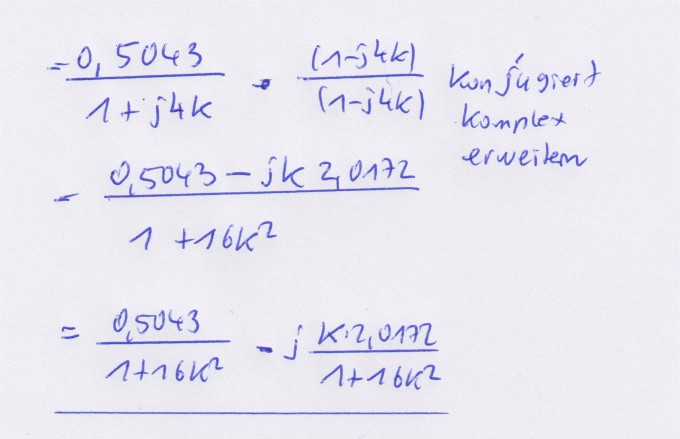 = 0,5043 / 1+j4k · (1-j4k) / (1-j4k) Konjugiert
komplex
erweitern
= 0,5043 - jk 2,0172 / 1 + 16k²
= 0,5043 / 1+16k² - j k·2,0172 / 1+16k²